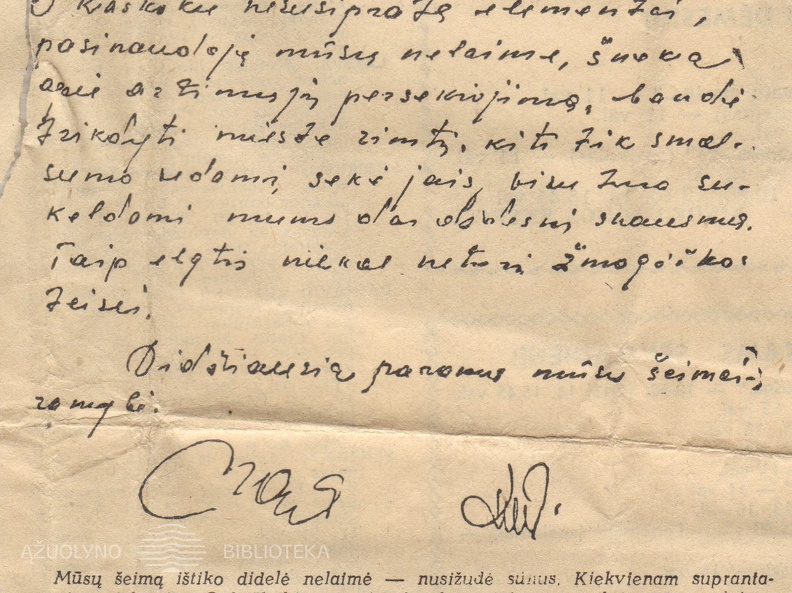 kažkokie nesusipratę elementai,
pasinaudoję mūsų nelaime, šneka
apie artimųjų persekiojimą, bandė
trikdyti mieste rimtį, kiti tik smal-
sumo vedami, sekė jais, visu tuo su-
keldami mums dar didesnį skausmą.
Taip elgtis niekas neturi žmogiškos
teisės.
Didžiausia parama mūsų šeimai -
ramybė.
AŽUOLYNO BIBLIOTEKA
Mūsų šeimą ištiko didelė nelaimė — nusižudė sūnus. Kiekvienam supranta-